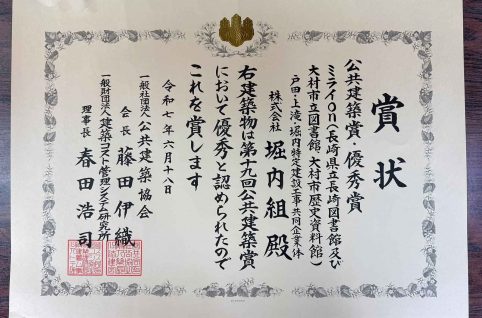 賞状
公共建築賞・優秀賞
ミライon(長崎県立長崎図書館及び
大村市立図書館 大村市歴史資料館)
戸田・上滝・堀内特定建設工事共同企業体
株式会社 堀内組 殿
右建築物は第十九回公共建築賞
において優秀と認められたので
これを賞します
令和七年六月十八日
一般社団法人 公共建築協会
会長 藤田伊織
一般財団法人 建築コスト管理システム研究所
理事長 春田浩司